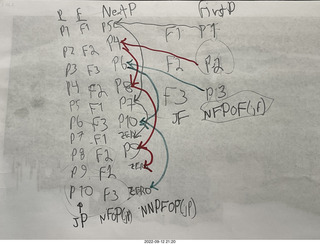 P F NextP FirstP
P1 F1 P5 F1 P1
P2 F2 P4 F2 P2
P3 F3 P6 F3 P3
P4 F2 P8 JF NFPOF(JF)
P5 F1 P7
P6 F3 P10
P7 F1 ZERO
P8 F2 P9
P9 F2 ZERO
P10 F3 ZERO
JP NFOP(JP) NNPFOP(JP)
2022-09-12 21:20